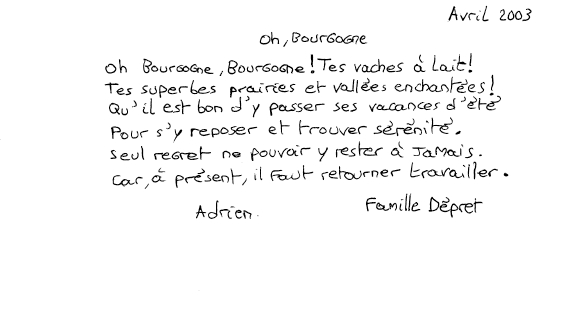 Avril 2003
Oh, Bourgogne
Oh Bourgogne, Bourgogne! Tes vaches à lait!
Tes superbes prairies et vallées enchantées!
Qu'il est bon d'y passer ses vacances d'été
Pour s'y reposer et trouver sérénité.
Seul regret ne pouvoir y rester à Jamais.
Car, à présent, il faut retourner travailler.
Adrien. Famille Dépret